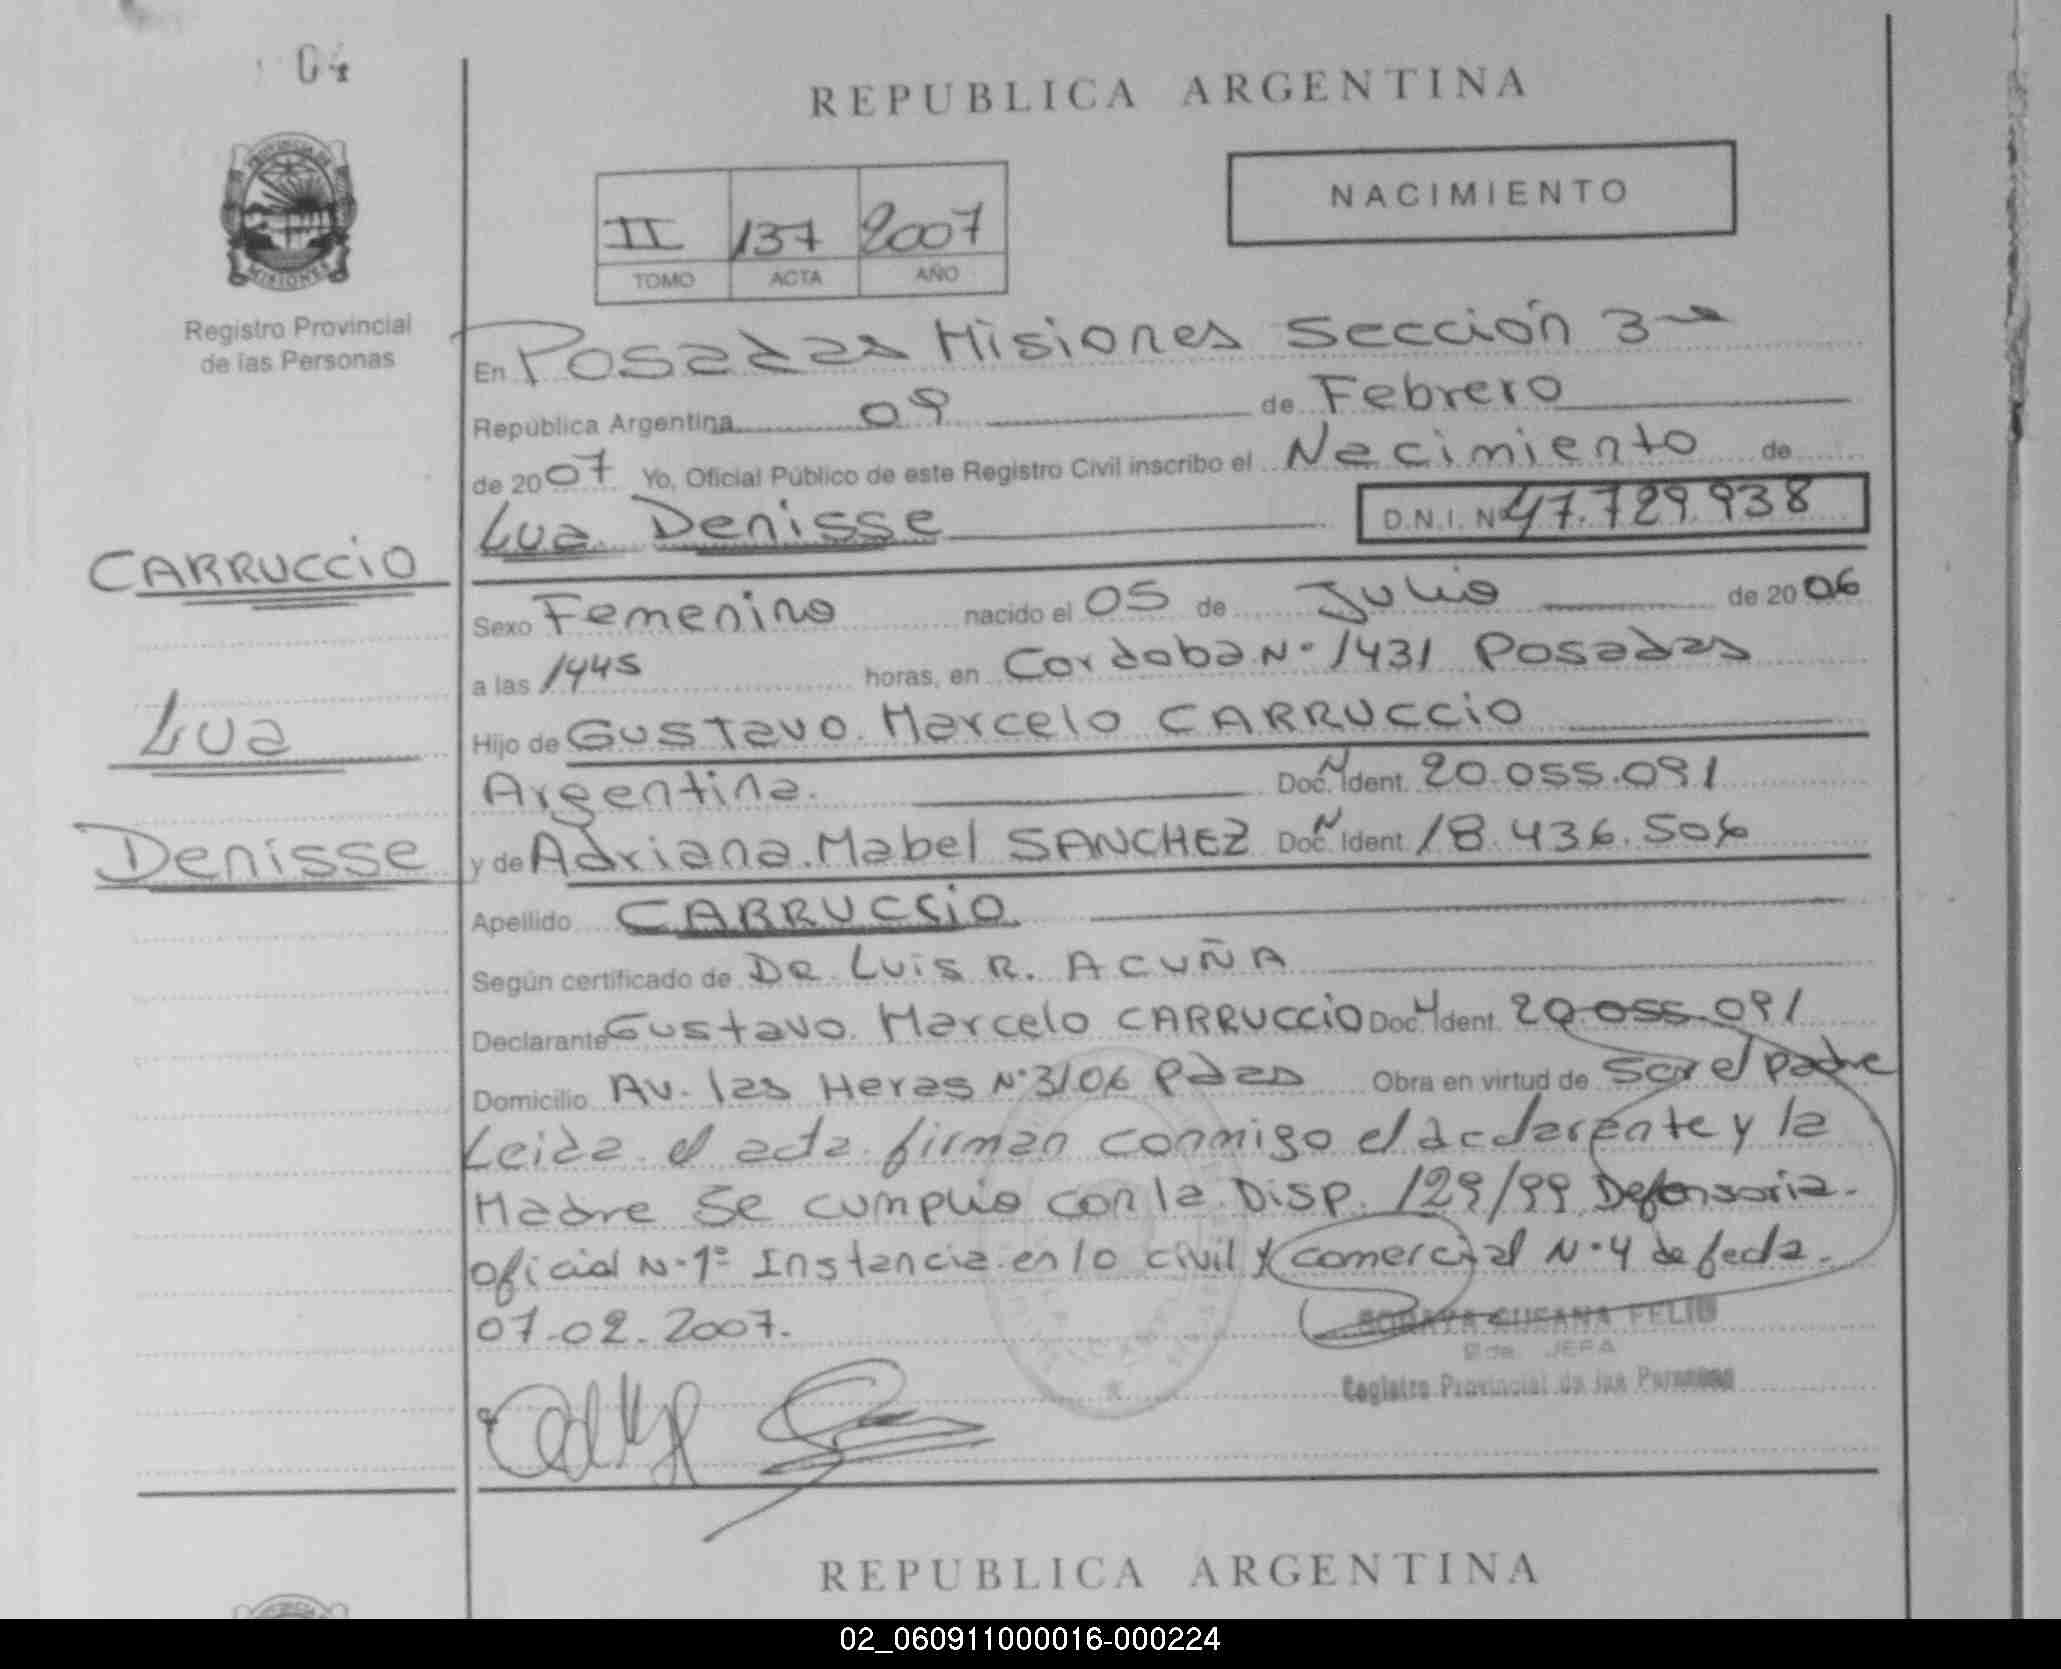 04
REPUBLICA ARGENTINA
PROVINCIA DE
MISIONES
NACIMIENTO
II 137 2007
TOMO ACTA AÑO
Registro Provincial
de las Personas
En Posadas Misiones Sección 3ra
República Argentina 09 de Febrero
de 2007 Yo, Oficial Público de este Registro Civil inscribo el Nacimiento de
Lua Denisse D.N.I. Nº 47.729.938
CARRUCCIO
Lua
Denisse
Sexo Femenino nacido el 05 de Julio de 2006
a las 1445 horas, en Cordoba N° 1431 Posadas
Hijo de Gustavo Marcelo CARRUCCIO
Argentina. Doc. N Ident. 20.055.091
y de Adriana Mabel SANCHEZ Doc. N Ident. 18.436.506
Apellido CARRUCCIO
Según certificado de DR LUIS R. ACUÑA
Declarante Gustavo Marcelo CARRUCCIO Doc. Ident. 20.055.091
Domicilio Av. las Heras N° 3106 Pdas Obra en virtud de Ser el padre
Leida el acta firman conmigo el declarante y la
Madre Se cumplio con la Disp. 129/99 Defensoria
oficial N° 1° Instancia en lo civil y comercial N° 4 de fecha
07.02.2007.
SORAYA SUSANA FELIU
2da. JEFA
Registro Provincial de las Personas
REPUBLICA ARGENTINA
02_060911000016-000224